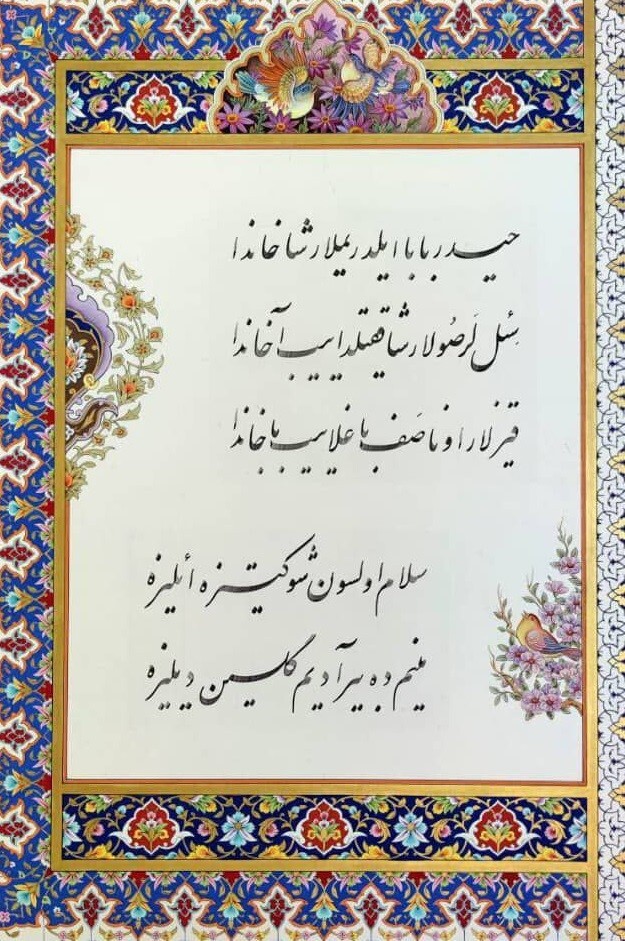 حیدربابا ایلدریملار شاخاندا
سئل لَر صُولار شاققیلداییب آخاندا
قیزلار اونا صَف باغلاییب باخاندا
سلام اولسون شوکتیزه ائلیزه
منیم ده بیر آدیم گلسین دیلیزه